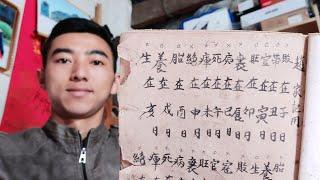 敗在子日
帶在丑日
官在寅日
旺在卯日
衰在辰日
病在巳日
死在午日
庫在未日
絕在申日
胎在酉日
養在戌日
生在亥日
胎
養
生
敗
帶
官
旺
衰
病
死
庫
絕